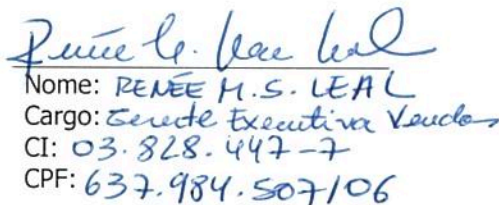 Nome: RENÉE M. S. LEAL
Cargo: Gerente Executiva Vendas
CI: 03.828.447-7
CPF: 637.984.507/06